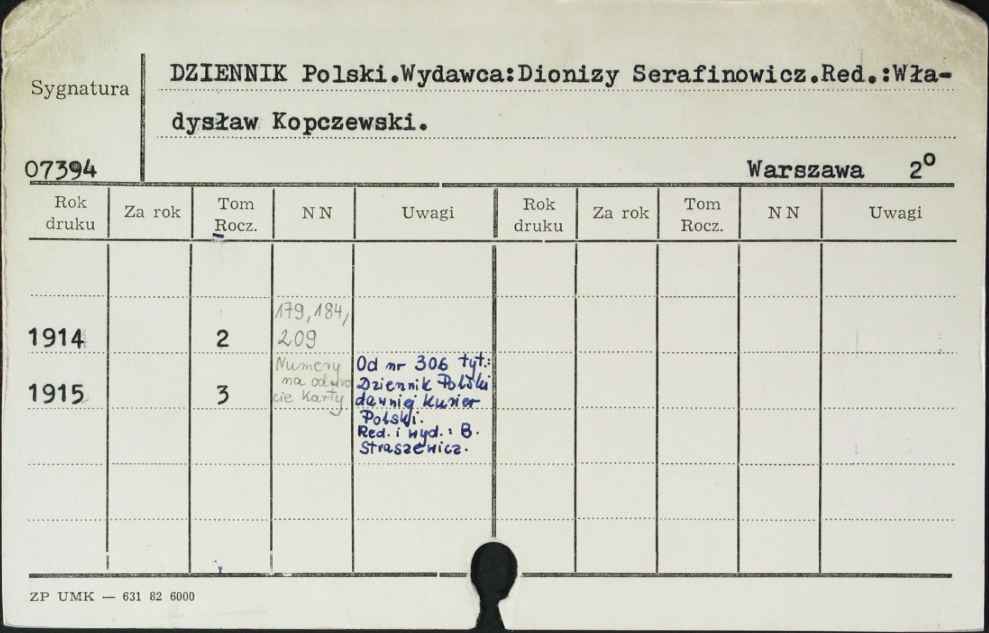 DZIENNIK Polski.Wydawca:Dionizy Serafinowicz.Red.:Wła-
Sygnatura
dysław Kopczewski.
07394
Warszawa 2º
Rok druku Za rok Tom Rocz. NN Uwagi Rok druku Za rok Tom Rocz. NN Uwagi
179, 184,
1914 2 209
Numery
na odwro
cie Karty
1915 3
Od nr 306 tyt.:
Dziennik Polski
dawniej Kurier
Polski.
Red. i wyd.: B.
Straszewicz.
ZP UMK — 631 82 6000